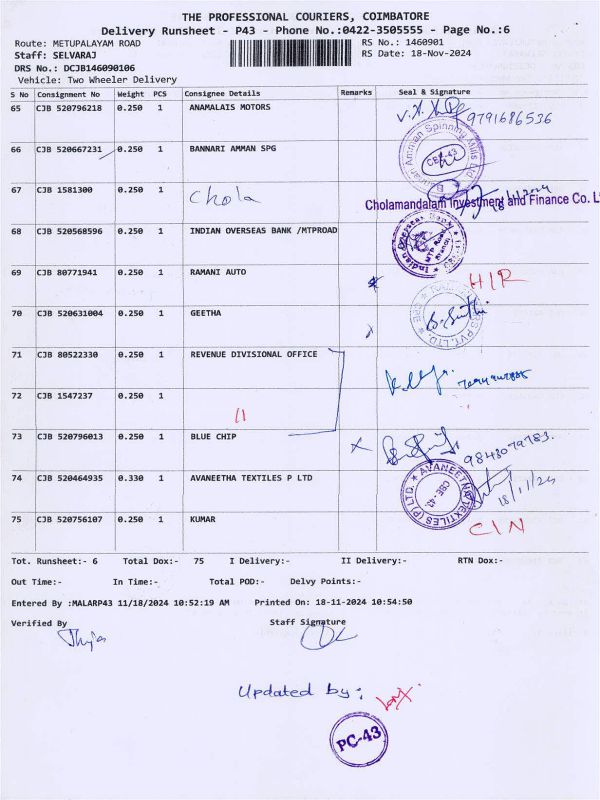 THE PROFESSIONAL COURIERS, COIMBATORE
Delivery Runsheet - P43 - Phone No.:0422-3505555 - Page No.:6
Route: METUPALAYAM ROAD RS No.: 1460901
Staff: SELVARAJ RS Date: 18-Nov-2024
DRS No.: DCJB146090106
Vehicle: Two Wheeler Delivery
S No Consignment No Weight PCS Consignee Details Remarks Seal & Signature
65 CJB 520796218 0.250 1 ANAMALAIS MOTORS 9791686536
66 CJB 520667231 0.250 1 BANNARI AMMAN SPG
67 CJB 1581300 0.250 1 Chola
Cholamandalam Investment and Finance Co. L
68 CJB 520568596 0.250 1 INDIAN OVERSEAS BANK /MTPROAD Indian Overseas Bank
69 CJB 80771941 0.250 1 RAMANI AUTO H/R
70 CJB 520631004 0.250 1 GEETHA
71 CJB 80522330 0.250 1 REVENUE DIVISIONAL OFFICE
72 CJB 1547237 0.250 1 11
73 CJB 520796013 0.250 1 BLUE CHIP
74 CJB 520464935 0.330 1 AVANEETHA TEXTILES P LTD AVANEETHA TEXTILES (P) LTD. CBE - 43. 18/11/24
75 CJB 520756107 0.250 1 KUMAR C/N
Tot. Runsheet:- 6 Total Dox:- 75 I Delivery:- II Delivery:- RTN Dox:-
Out Time:- In Time:- Total POD:- Delvy Points:-
Entered By :MALARP43 11/18/2024 10:52:19 AM Printed On: 18-11-2024 10:54:50
Verified By Staff Signature
Updated by:
PC-43